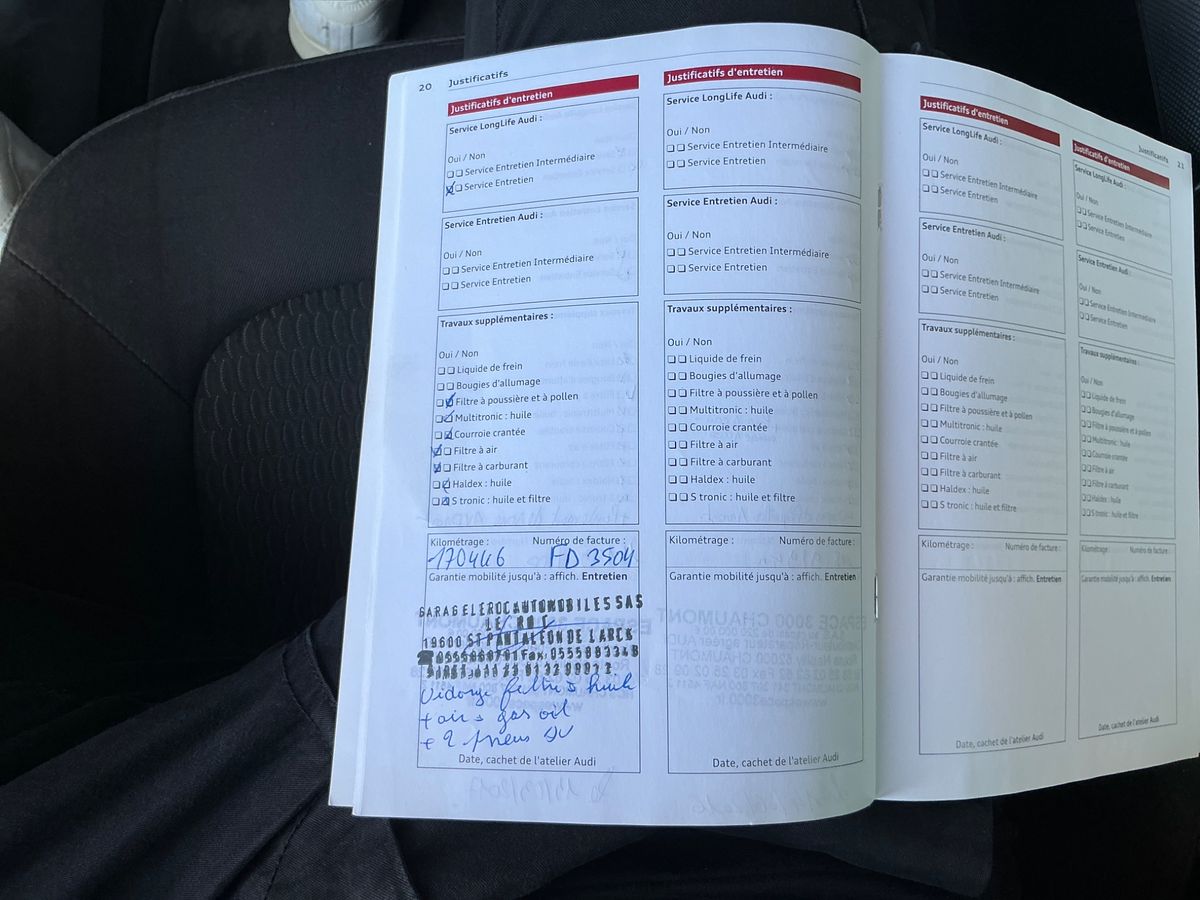 20 Justificatifs
Justificatifs d'entretien
Service LongLife Audi :
Oui / Non
❏❏ Service Entretien Intermédiaire
❏❏ Service Entretien
Service Entretien Audi :
Oui / Non
❏❏ Service Entretien Intermédiaire
❏❏ Service Entretien
Travaux supplémentaires :
Oui / Non
❏❏ Liquide de frein
❏❏ Bougies d'allumage
❏❏ Filtre à poussière et à pollen
❏❏ Multitronic : huile
❏❏ Courroie crantée
❏❏ Filtre à air
❏❏ Filtre à carburant
❏❏ Haldex : huile
❏❏ S tronic : huile et filtre
Kilométrage : Numéro de facture :
170446 FD 3504
Garantie mobilité jusqu'à : affich. Entretien
GARAGE LEROC AUTOMOBILES SAS
LE ROC
19600 ST PANTALEON DE LARCK
Fax:
Vidange filtres huile
+ air + gas oil
+ 2 pneus AV
Date, cachet de l'atelier Audi
Justificatifs d'entretien
Service LongLife Audi :
Oui / Non
❏❏ Service Entretien Intermédiaire
❏❏ Service Entretien
Service Entretien Audi :
Oui / Non
❏❏ Service Entretien Intermédiaire
❏❏ Service Entretien
Travaux supplémentaires :
Oui / Non
❏❏ Liquide de frein
❏❏ Bougies d'allumage
❏❏ Filtre à poussière et à pollen
❏❏ Multitronic : huile
❏❏ Courroie crantée
❏❏ Filtre à air
❏❏ Filtre à carburant
❏❏ Haldex : huile
❏❏ S tronic : huile et filtre
Kilométrage : Numéro de facture :
Garantie mobilité jusqu'à : affich. Entretien
Date, cachet de l'atelier Audi
Justificatifs 21
Justificatifs d'entretien
Service LongLife Audi :
Oui / Non
❏❏ Service Entretien Intermédiaire
❏❏ Service Entretien
Service Entretien Audi :
Oui / Non
❏❏ Service Entretien Intermédiaire
❏❏ Service Entretien
Travaux supplémentaires :
Oui / Non
❏❏ Liquide de frein
❏❏ Bougies d'allumage
❏❏ Filtre à poussière et à pollen
❏❏ Multitronic : huile
❏❏ Courroie crantée
❏❏ Filtre à air
❏❏ Filtre à carburant
❏❏ Haldex : huile
❏❏ S tronic : huile et filtre
Kilométrage : Numéro de facture :
Garantie mobilité jusqu'à : affich. Entretien
Date, cachet de l'atelier Audi
Justificatifs d'entretien
Service LongLife Audi :
Oui / Non
❏❏ Service Entretien Intermédiaire
❏❏ Service Entretien
Service Entretien Audi :
Oui / Non
❏❏ Service Entretien Intermédiaire
❏❏ Service Entretien
Travaux supplémentaires :
Oui / Non
❏❏ Liquide de frein
❏❏ Bougies d'allumage
❏❏ Filtre à poussière et à pollen
❏❏ Multitronic : huile
❏❏ Courroie crantée
❏❏ Filtre à air
❏❏ Filtre à carburant
❏❏ Haldex : huile
❏❏ S tronic : huile et filtre
Kilométrage : Numéro de facture :
Garantie mobilité jusqu'à : affich. Entretien
Date, cachet de l'atelier Audi